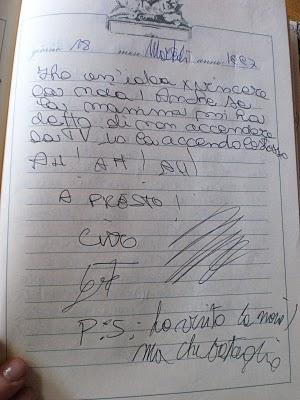 giorno 18 mese Martedì anno 1997
Ho un'idea x vincere
la noia! Anche se
la mamma mi ha
detto di non accendere
la TV io la accendo lo stesso
AH! AH! AH!
A PRESTO!
Ciao
P.S.: ho vinto la noia
ma che battaglia